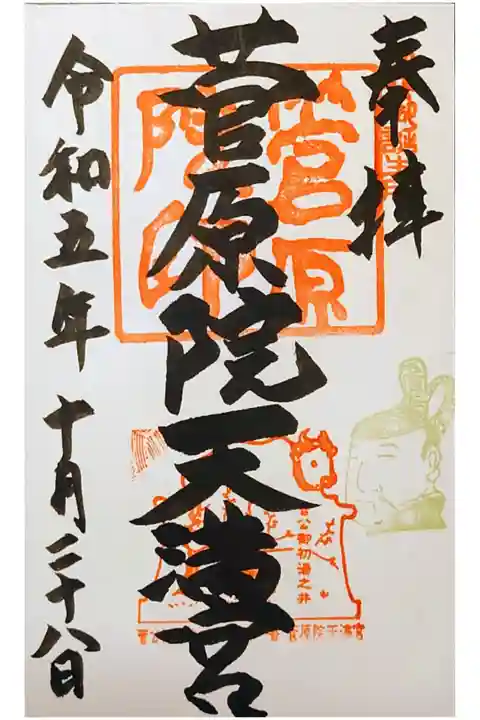 奉拝
菅原院天満宮
令和五年十月二十八日
菅原院印
菅公御初湯之井